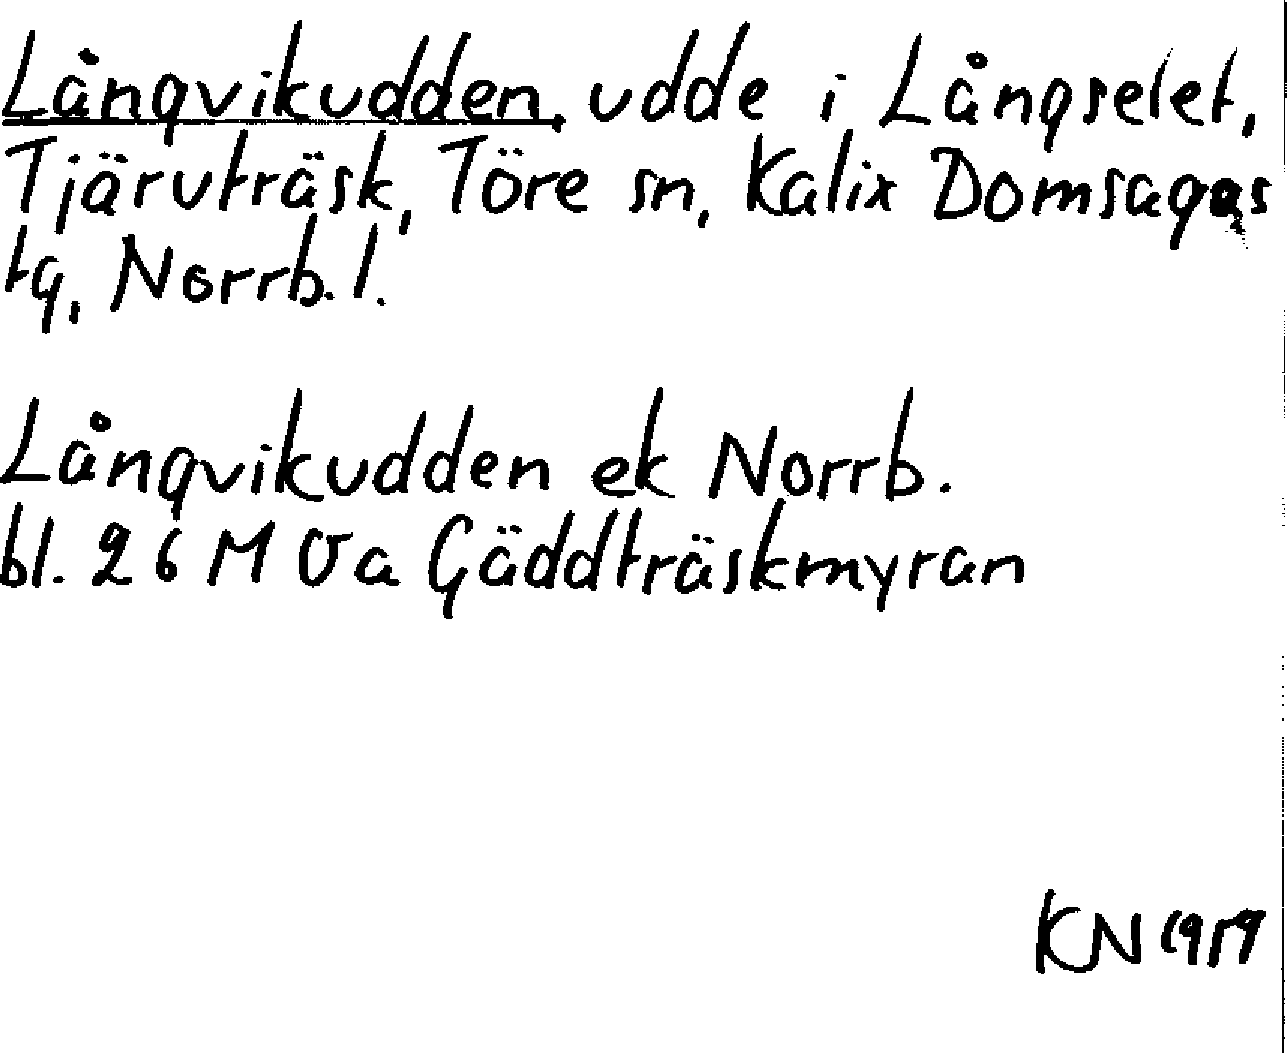 Långvikudden, udde i Långselet,
Tjäruträsk, Töre sn, Kalix Domsagas
tg, Norrb. l.
Långvikudden ek Norrb.
bl. 26 M Va Gäddträskmyran
KN 1959